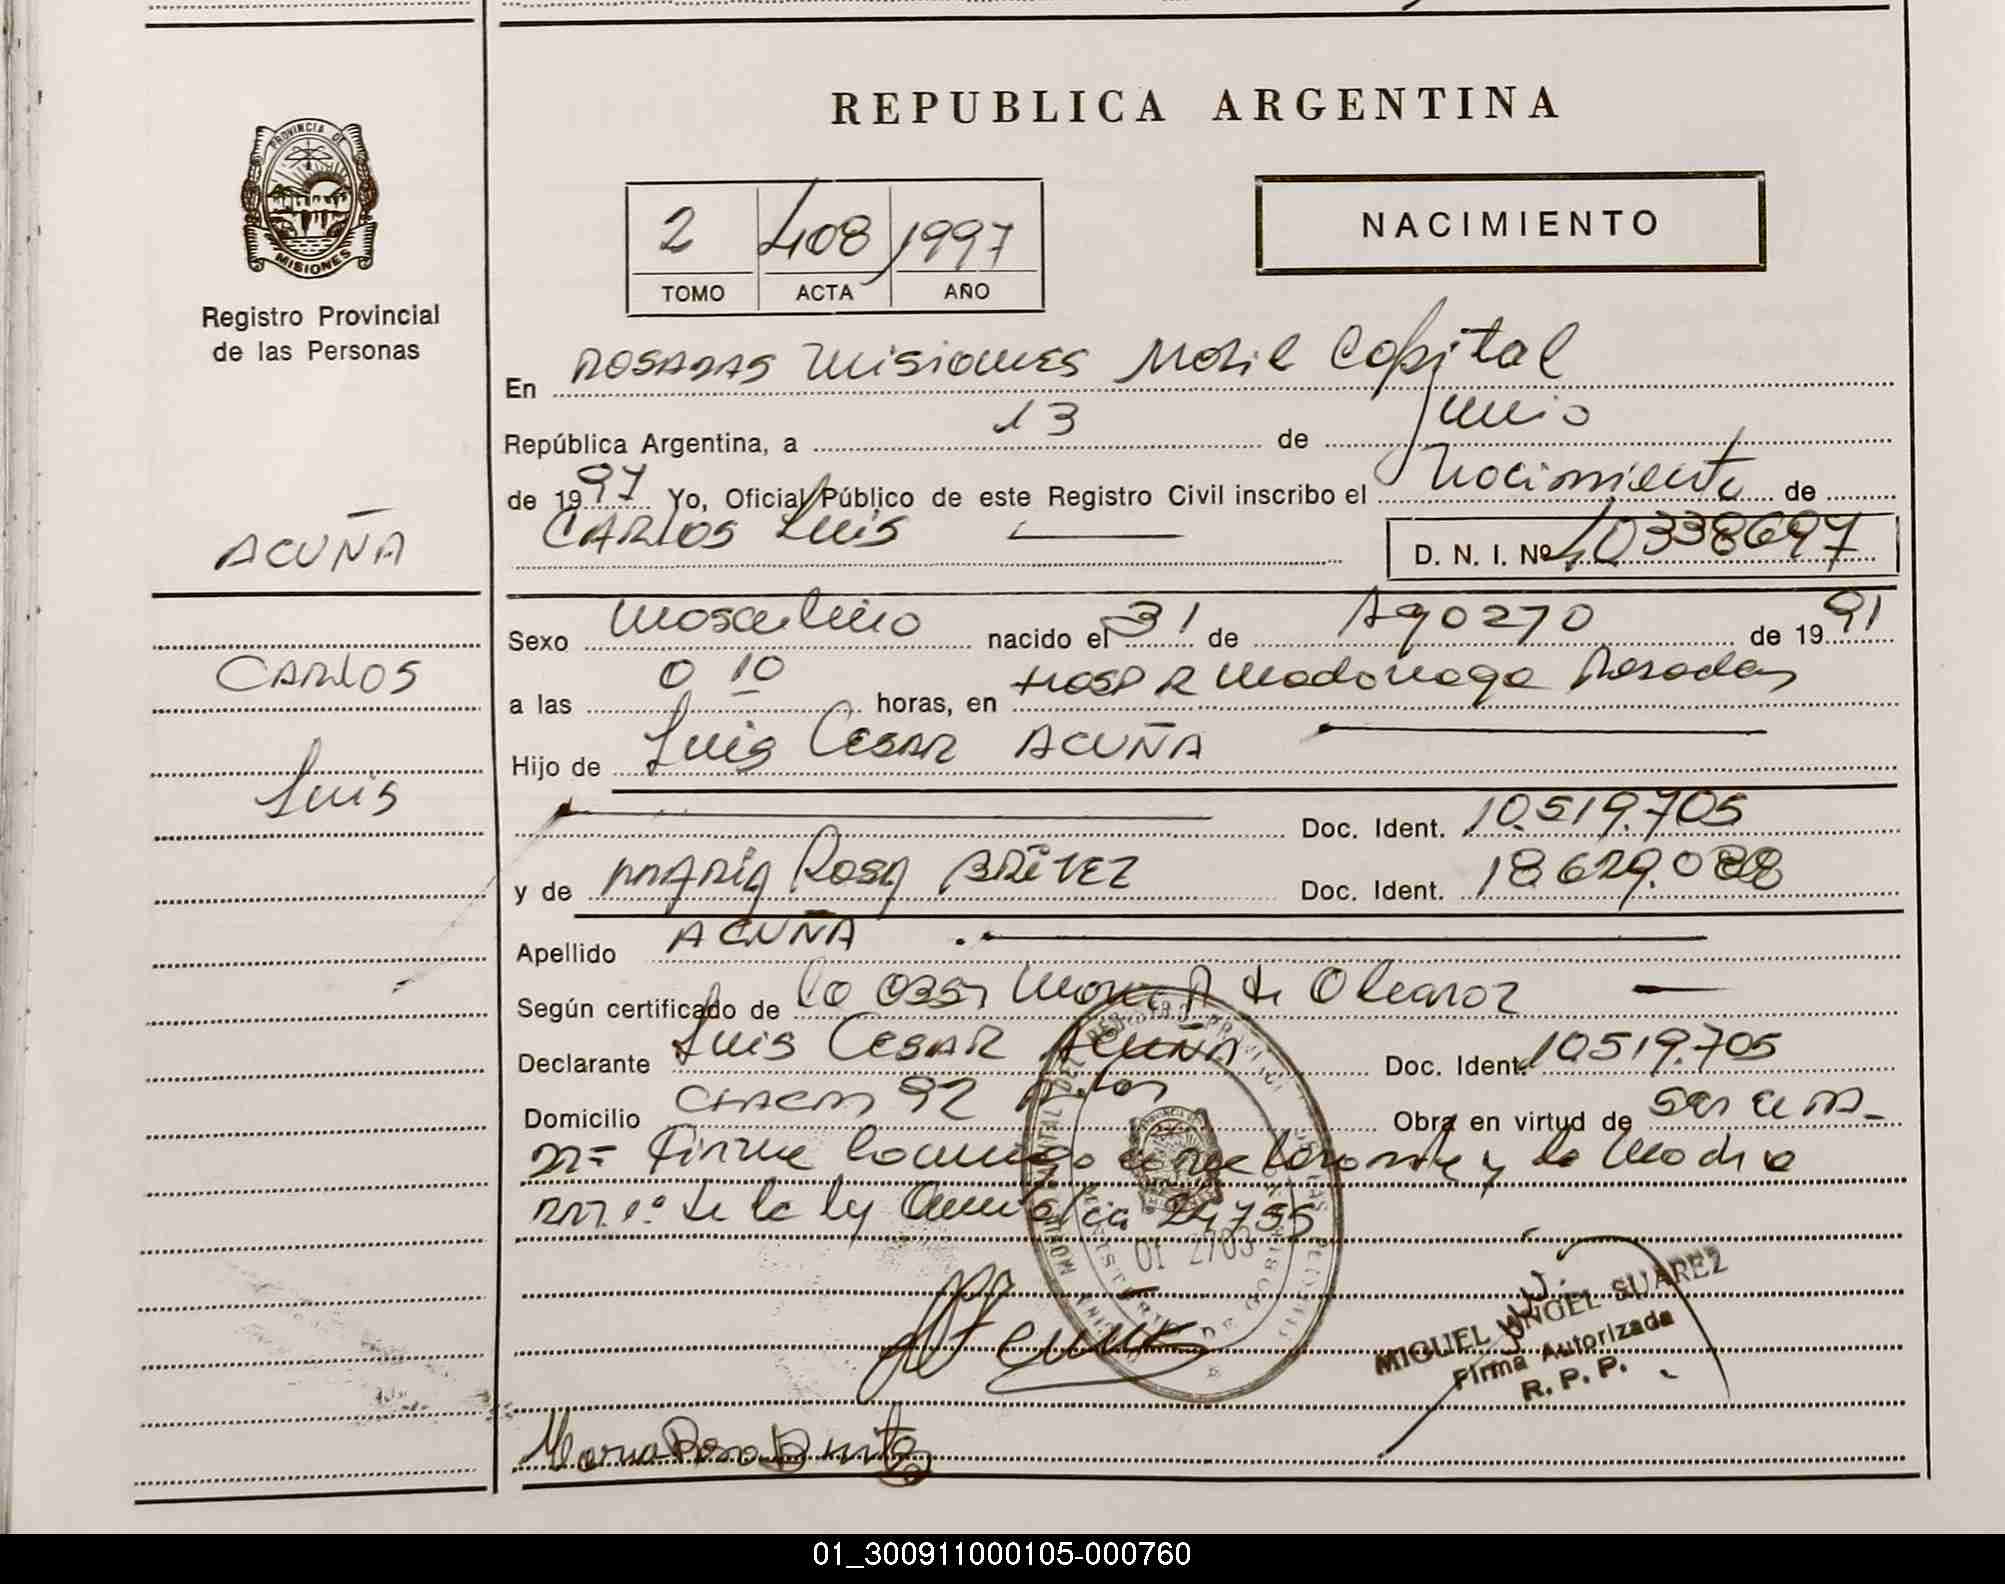 REPUBLICA ARGENTINA
PROVINCIA DE
MISIONES
Registro Provincial
de las Personas
2 408 1997
TOMO ACTA AÑO
NACIMIENTO
En POSADAS Misiones Movil Capital
República Argentina, a 13 de Junio
de 1997 Yo, Oficial Público de este Registro Civil inscribo el Nacimiento de
CARLOS Luis D. N. I. Nº 40338697
ACUÑA
CARLOS
Luis
Sexo Masculino nacido el 31 de Agosto de 1991
a las 0 10 horas, en HOSP R Madariaga Posadas
Hijo de Luis CESAR ACUÑA
Doc. Ident. 10.519.705
y de MARIA ROSA Doc. Ident. 18.629.088
Apellido ACUÑA
Según certificado de la
Declarante Luis CESAR ACUÑA Doc. Ident. 10.519.705
Domicilio 92 Obra en virtud de
Firma conmigo y la Madre
1º de la ley 24755
01 2703
MIGUEL ANGEL SUAREZ
Firma Autorizada
R. P. P.
Maria Rosa
01_300911000105-000760